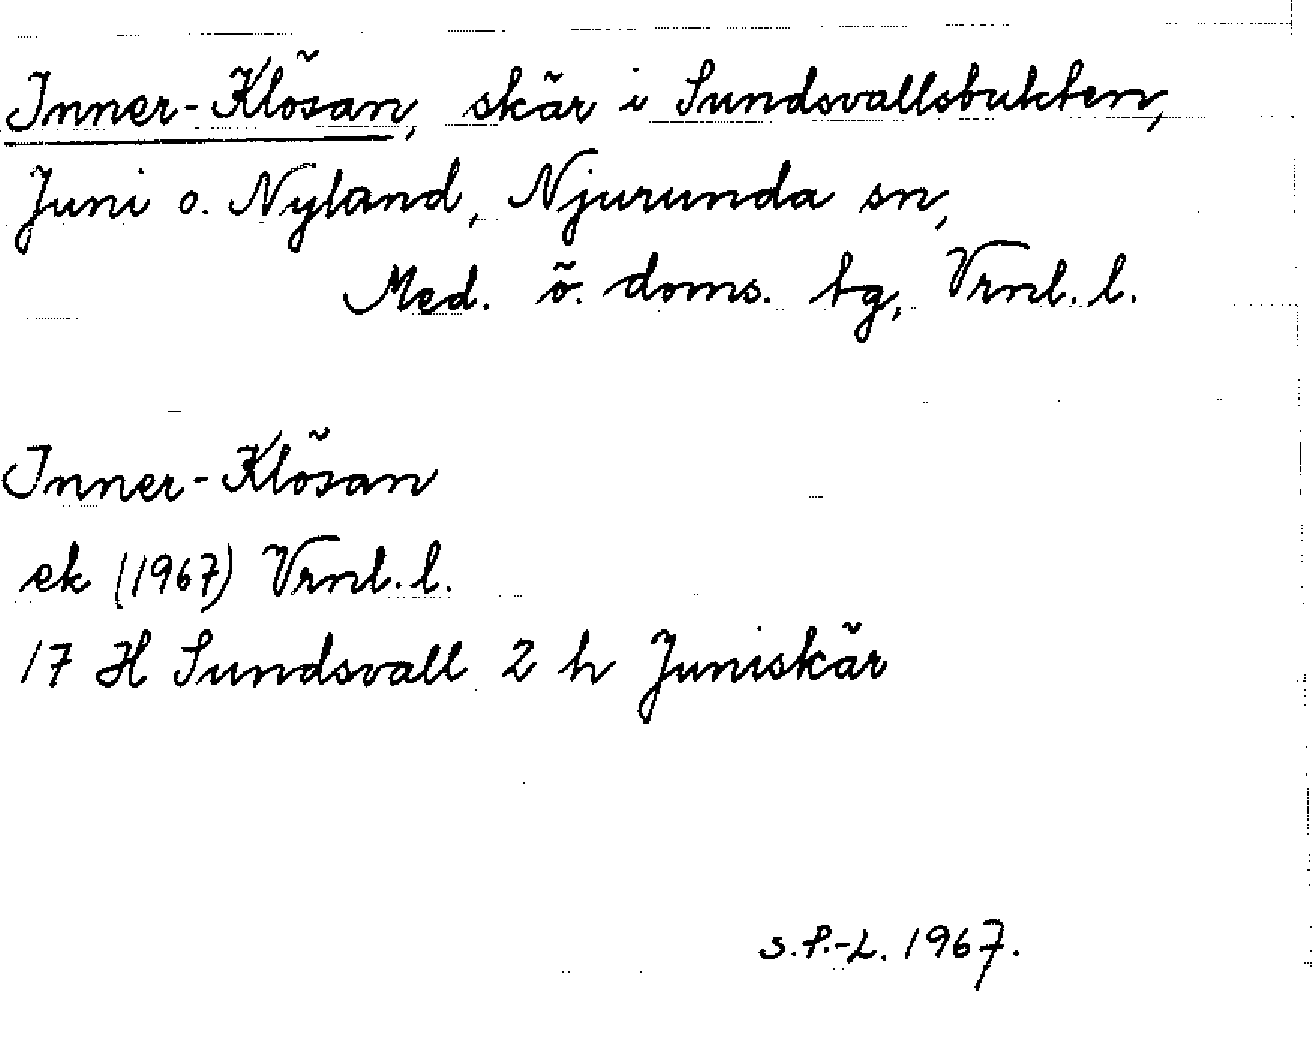 Inner-Klösan, skär i Sundsvallsbukten,
Juni o. Nyland, Njurunda sn,
Med. ö. doms. tg, Vrnl. l.
Inner-Klösan
ek (1967) Vrnl. l.
17 H Sundsvall 2 h Juniskär
S.P.-L. 1967.